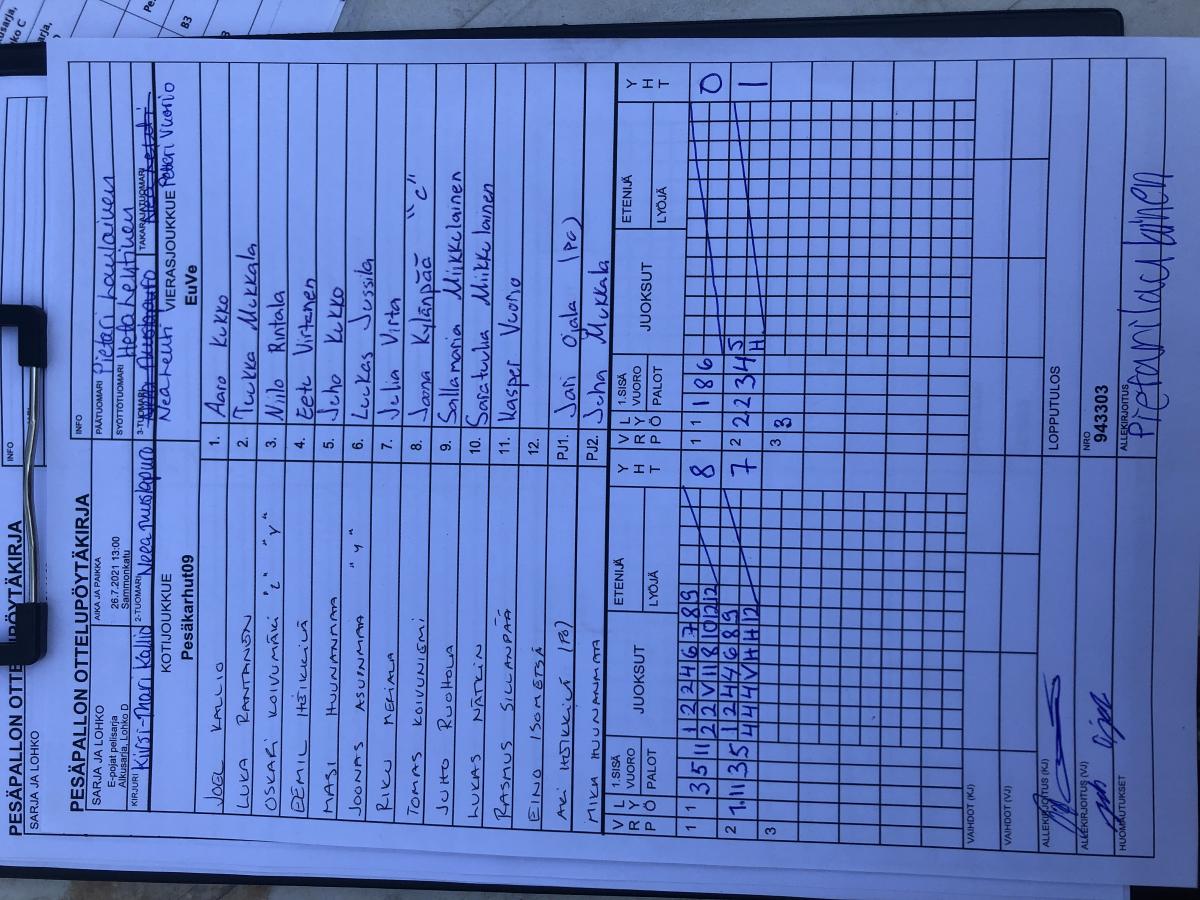 PESÄPALLON OTTELUPÖYTÄKIRJA
SARJA JA LOHKO
E-pojat pelisarja
Alkusarja, Lohko D
AIKA JA PAIKKA
26.7.2021 13:00
Sammonkatu
INFO
PÄÄTUOMARI
SYÖTTÖTUOMARI
KIRJURI Kirsi-Mari Kallio
2-TUOMARI Neea Mustapuro
3-TUOMARI Nea Lehti
TAKARAJATUOMARI Petteri Vuorio
KOTIJOUKKUE
Pesäkarhut09
VIERASJOUKKUE
EuVe
JOEL KALLIO 1. Aaro Kukko
LUKA RANTANEN 2. Tuukka Mukkala
OSKARI KOIVUMÄKI "C" "Y" 3. Niilo Rintala
EEMIL HÖIKKILÄ 4. Eeti Virtanen
MASI HUUNANMAA 5. Juho Kukko
JOONAS ASUNMAA "Y" 6. Luukas Jussila
RIKU MEIMALA 7. Julia Virta
TOMAS KOIVUNIEMI 8. Joona Kylänpää "C"
JUHO RUOHOLA 9. Sallamaria Miikkulainen
LUKAS NÄTKIN 10. Saratuulia Miikkulainen
RASMUS SILLANPÄÄ 11. Kasperi Vuorio
EINO ISOMETSÄ 12.
AKI HÖIKKILÄ (PG) PJ1. Jari Ojala (PG)
MIKA HUUNANMAA PJ2. Juha Mukkala
VRP LYÖ 1.SISÄ VUORO PALOT JUOKSUT ETENIJÄ LYÖJÄ YHT
VRP LYÖ 1.SISÄ VUORO PALOT JUOKSUT ETENIJÄ LYÖJÄ YHT
1 1 3 5 11 1 2 2 4 6 7 8 9 8
2 2 V 11 8 10 12 12
1 1 1 8 6 0
2 7 11 3 5 1 2 4 4 6 8 9 7
4 4 4 V H H 12
2 2 2 3 4 5 1
H
3
3 3
VAIHDOT (KJ)
VAIHDOT (VJ)
ALLEKIRJOITUS (KJ)
LOPPUTULOS
ALLEKIRJOITUS (VJ)
NRO
943303
HUOMAUTUKSET
ALLEKIRJOITUS
INFO
SARJA JA LOHKO
B3